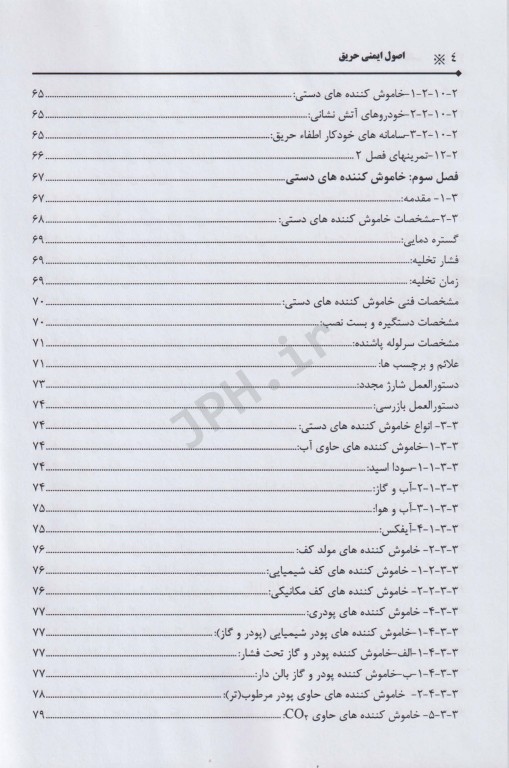 ۴ ※ اصول ایمنی حریق
۲-۱۰-۲-۱-خاموش کننده های دستی: ۶۵
۲-۱۰-۲-۲-خودروهای آتش نشانی: ۶۵
۲-۱۰-۲-۳-سامانه های خودکار اطفاء حریق: ۶۵
۲-۱۲-تمرینهای فصل ۲ ۶۶
فصل سوم: خاموش کننده های دستی ۶۷
۳-۱- مقدمه: ۶۷
۳-۲-مشخصات خاموش کننده های دستی: ۶۸
گستره دمایی: ۶۹
فشار تخلیه: ۶۹
زمان تخلیه: ۶۹
مشخصات فنی خاموش کننده های دستی: ۷۰
مشخصات دستگیره و بست نصب: ۷۰
مشخصات سرلوله پاشنده: ۷۱
علائم و برچسب ها: ۷۱
دستورالعمل شارژ مجدد: ۷۳
دستورالعمل بازرسی: ۷۴
۳-۳- انواع خاموش کننده های دستی: ۷۴
۳-۳-۱-خاموش کننده های حاوی آب: ۷۴
۳-۳-۱-۱-سودا اسید: ۷۴
۳-۳-۱-۲-آب و گاز: ۷۴
۳-۳-۱-۳-آب و هوا: ۷۵
۳-۳-۱-۴-آیفکس: ۷۵
۳-۳-۲- خاموش کننده های مولد کف: ۷۶
۳-۳-۲-۱- خاموش کننده های کف شیمیایی: ۷۶
۳-۳-۲-۲- خاموش کننده های کف مکانیکی: ۷۶
۳-۳-۴- خاموش کننده های پودری: ۷۷
۳-۳-۴-۱-خاموش کننده های پودر شیمیایی (پودر و گاز): ۷۷
۳-۳-۴-۱-الف-خاموش کننده پودر و گاز تحت فشار: ۷۷
۳-۳-۴-۱-ب-خاموش کننده پودر و گاز بالن دار: ۷۷
۳-۳-۴-۲- خاموش کننده های حاوی پودر مرطوب(تر): ۷۸
۳-۳-۵- خاموش کننده های حاوی CO۲: ۷۹
JPH.ir